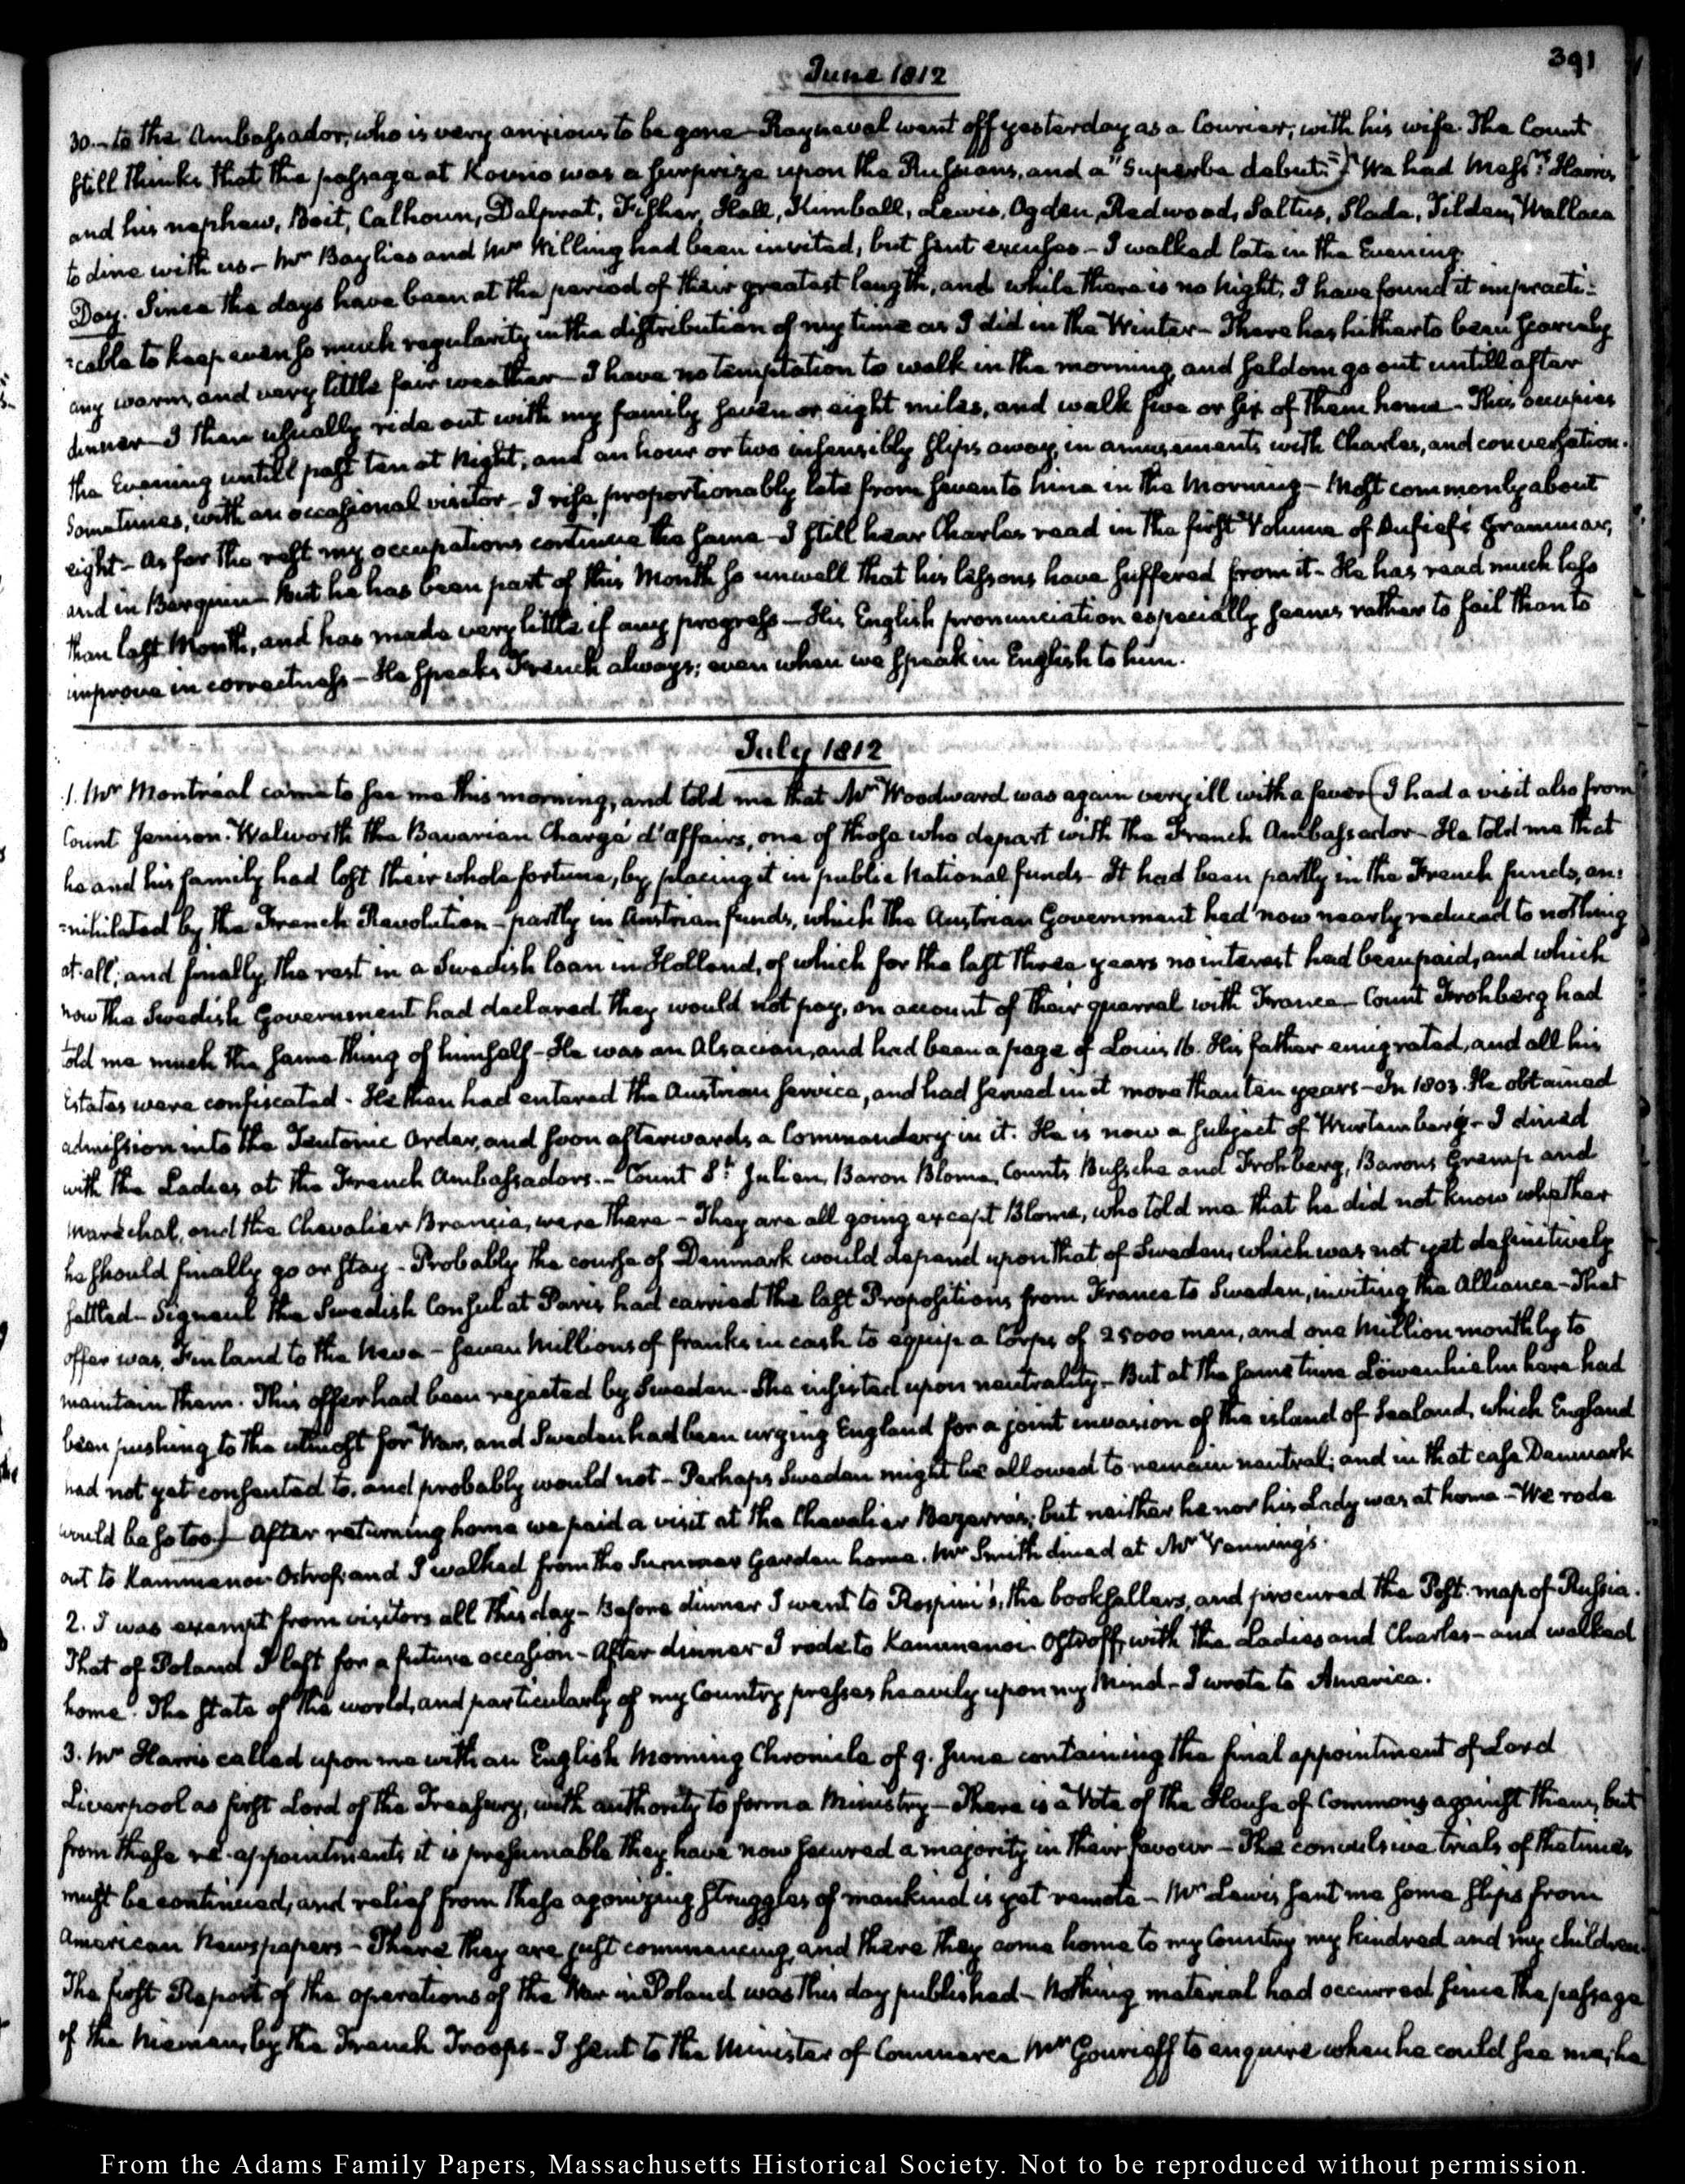 391
June 1812
30.- to the Ambassador, who is very anxious to be gone - Rayneval went off yesterday as a Courier, with his wife. The Count
still thinks that the passage at Kowno was a surprize upon the Russians, and a "Superbe debut.") We had Messrs: Harris
and his nephew, Beit, Calhoun, Dalprat, Fisher, Hall, Kimball, Lewis, Ogden, Redwood, Saltus, Slade, Tilden, Wallace
to dine with us - Mr Baylies and Mr Willing had been invited, but sent excuses - I walked late in the Evening.
Day. Since the days have been at the period of their greatest length, and while there is no Night, I have found it impracti-
-cable to keep even so much regularity in the distribution of my time as I did in the Winter - There has hitherto been scarcely
any warm, and very little fair weather - I have no temptation to walk in the morning, and seldom go out untill after
dinner - I then usually ride out with my family seven or eight miles, and walk five or six of them home - This occupies
the Evening untill past ten at Night, and an hour or two insensibly slips away, in amusements with Charles, and conversation.
Sometimes, with an occasional visitor - I rise, proportionably late from seven to nine in the Morning - Most commonly about
eight - As for the rest my occupations continue the same - I still hear Charles read in the first Volume of Dufief's Grammar,
and in Berquin - But he has been part of this Month so unwell that his lessons have suffered from it - He has read much less
than last Month, and has made very little if any progress - His English pronunciation especially seems rather to fail than to
improve in correctness - He speaks French always; even when we speak in English to him.
July 1812
1. Mr Montréal came to see me this morning, and told me that Mr Woodward was again very ill with a fever (I had a visit also from
Count Jenison-Walworth the Bavarian Chargé d'affairs, one of those who depart with the French Ambassador - He told me that
he and his family had lost their whole fortune, by placing it in public National funds - It had been partly in the French funds, an-
-nihilated by the French Revolution - partly in Austrian funds, which the Austrian Government had now nearly reduced to nothing
at all; and finally, the rest in a Swedish loan in Holland, of which for the last three years no interest had been paid, and which
now the Swedish Government had declared they would not pay, on account of their quarrel with France - Count Frohberg had
told me much the same thing of himself - He was an Alsacian, and had been a page of Louis 16. His father emigrated, and all his
Estates were confiscated - He then had entered the Austrian service, and had served in it more than ten years - In 1803. He obtained
admission into the Teutonic Order, and soon afterwards a Commandery in it. He is now a subject of Wurtemberg - I dined
with the Ladies at the French Ambassadors. - Count St Julien, Baron Blome, Counts Bussche and Frohberg, Barons Gremp and
Maréchal, and the Chevalier Brancia, were there - They are all going except Blome, who told me that he did not know whether
he should finally go or stay - Probably the course of Denmark would depend upon that of Sweden, which was not yet definitively
settled - Signeul the Swedish Consul at Paris had carried the last Propositions from France to Sweden, inviting the Alliance - That
offer was, Finland to the Neva - seven Millions of franks in cash to equip a Corps of 25000 men, and one Million monthly to
maintain them. This offer had been rejected by Sweden - She insisted upon neutrality - But at the same time Löwenhielm here had
been pushing to the utmost for War, and Sweden had been urging England for a joint invasion of the island of Sealand, which England
had not yet consented to, and probably would not - Perhaps Sweden might be allowed to remain neutral; and in that case Denmark
would be so too.) - After returning home we paid a visit at the Chevalier Bezerra's; but neither he nor his Lady was at home - We rode
out to Kammenoi Ostrof; and I walked from the Summer Garden home. Mr Smith dined at Mr Venning's.
2. I was exempt from visitors all this day - Before dinner I went to Rospini's, the booksellers, and procured the Post-map of Russia.
That of Poland I left for a future occasion - After dinner I rode to Kammenoi-Ostroff, with the Ladies and Charles - and walked
home. The state of the world, and particularly of my Country presses heavily upon my Mind - I wrote to America.
3. Mr Harris called upon me with an English Morning Chronicle of 9. June containing the final appointment of Lord
Liverpool as first Lord of the Treasury, with authority to form a Ministry - There is a Vote of the House of Commons against them, but
from these re-appointments it is presumable they have now secured a majority in their favour - The convulsive trials of the times
must be continued, and relief from these agonizing struggles of mankind is yet remote - Mr Lewis sent me some slips from
American Newspapers - There they are just commencing, and there they come home to my Country my kindred and my children.
The first Report of the operations of the War in Poland was this day published - Nothing material had occurred since the passage
of the Niemen, by the French Troops - I sent to the Minister of Commerce Mr Gourieff to enquire when he could see me; he
From the Adams Family Papers, Massachusetts Historical Society. Not to be reproduced without permission.